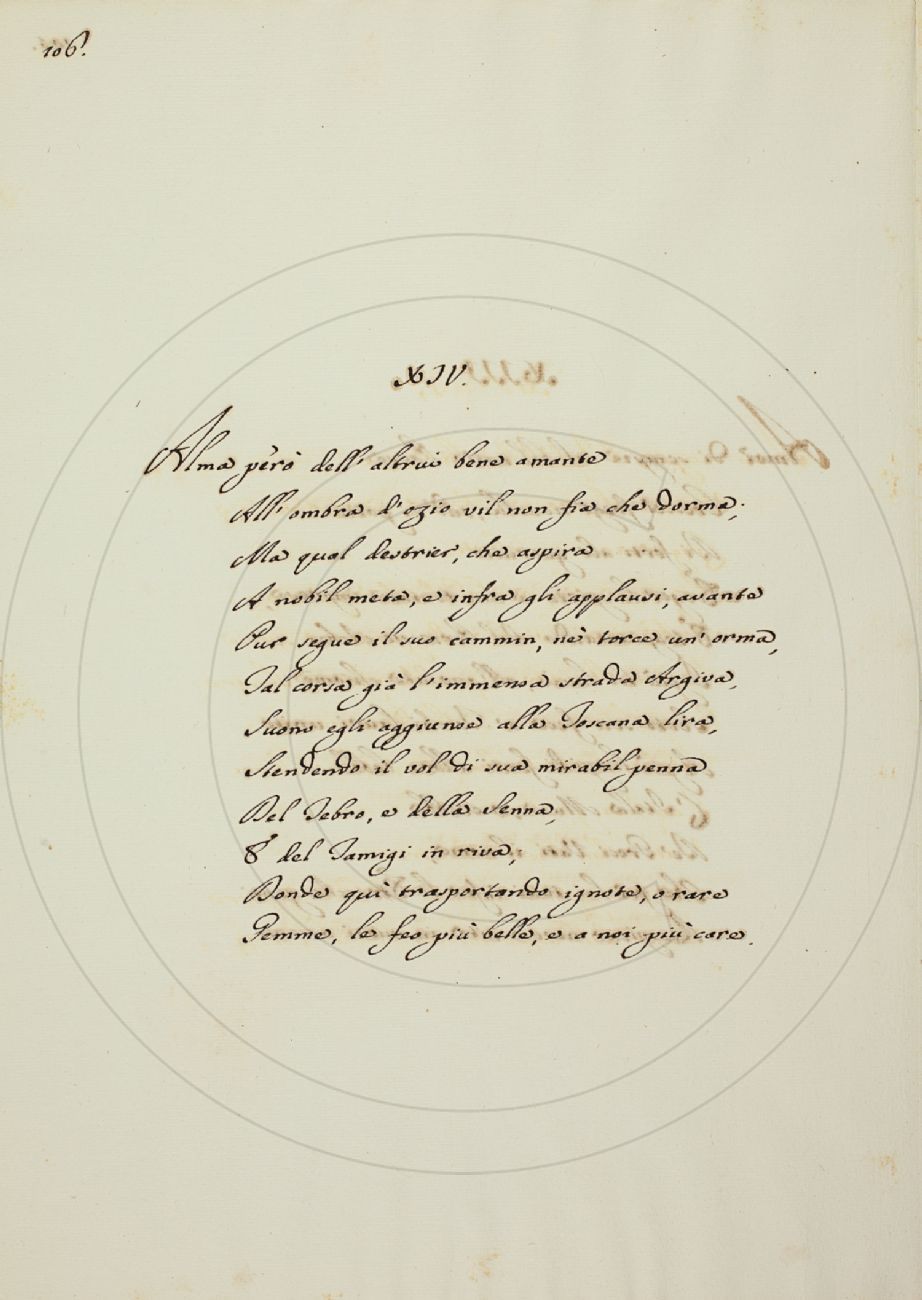 106.
XIV.
Alma però dell' altrui bene amante
All' ombra d'ozio vil non fia che dorma;
Ma qual destrier, che aspira
A nobil meta, e infra gli applausi, avante
Pur segue il suo cammin, nè torce un' orma,
Tal corsa già l'immensa strada Argiva,
Suono egli aggiunse alla Toscana lira,
Stendendo il vol di sua mirabil penna
Del Tebro, e della Senna,
E del Tamigi in riva;
Donde quì trasportando ignote, o rare
Gemme, le feo più belle, e a noi più care.